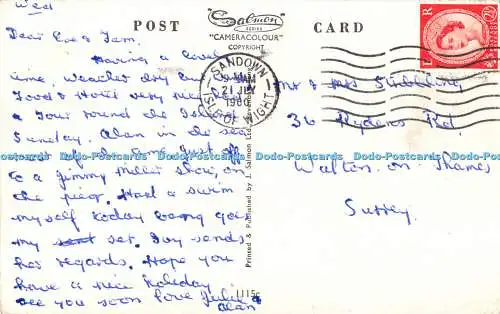 Wed
POST
Salmon
SERIES
"CAMERACOLOUR"
COPYRIGHT
CARD
Dear & Tam,
Having a
time, weather dry
Food & Hotel very nice, had
a Tour round the
Sunday. Alan in the sea
Just off
to a Jimmy show, on
the pier. Had a swim
my self today going
my set. Ivy sends
her regards. Hope you
have a nice holiday
see you soon love Julie &
Alan
SANDOWN
21 JLY
1960
ISLE OF WIGHT
Mr & Mrs Stribbling
36 Ryders Rd.
Walton-on-Thames
Surrey.
Printed & Published by J. Salmon Ltd.
1115c
Dodo-Postcards Dodo-Postcards Dodo-Postcards Dodo-Postcards Dodo-Postcards